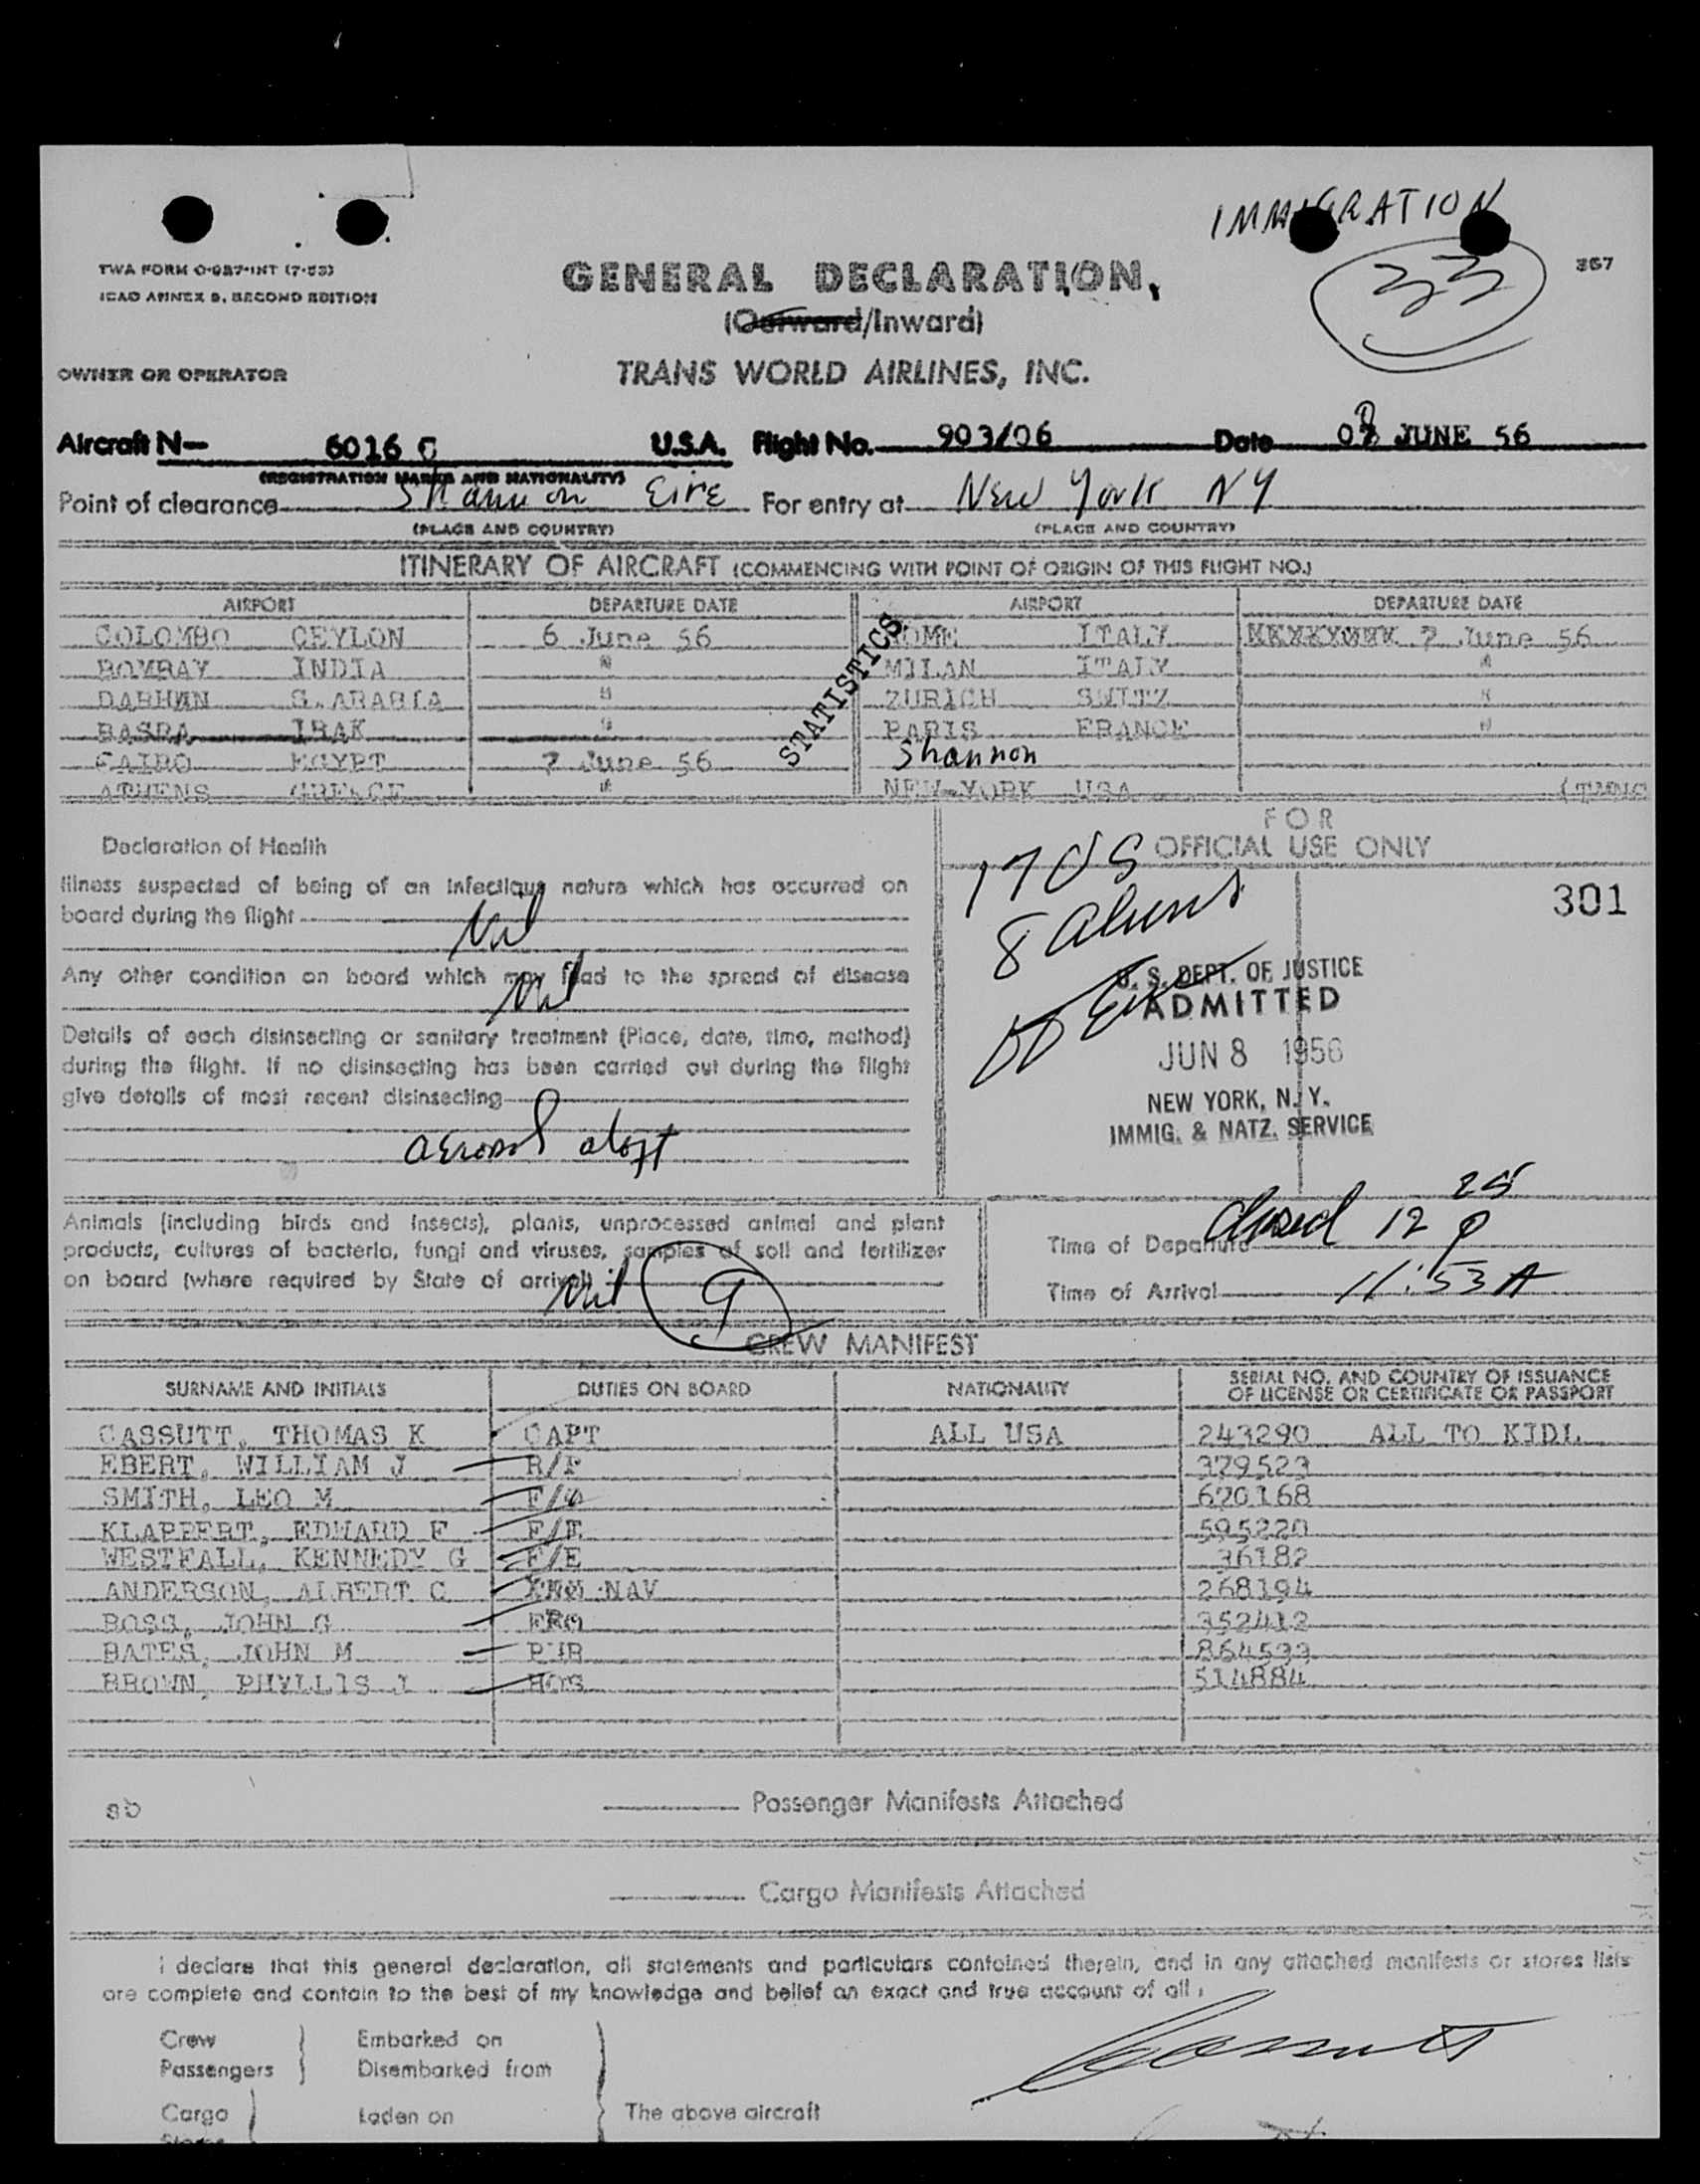 IMMIGRATION
33
367
TWA FORM O-987-INT (7-53)
ICAO ANNEX 9, SECOND EDITION
GENERAL DECLARATION
(Outward/Inward)
OWNER OR OPERATOR
TRANS WORLD AIRLINES, INC.
Aircraft N- 6016 C U.S.A. Flight No. 903/06 Date 08 JUNE 56
(REGISTRATION MARKS AND NATIONALITY)
Point of clearance Shannon Eire For entry at New York NY
(PLACE AND COUNTRY) (PLACE AND COUNTRY)
ITINERARY OF AIRCRAFT (COMMENCING WITH POINT OF ORIGIN OF THIS FLIGHT NO.)
AIRPORT DEPARTURE DATE AIRPORT DEPARTURE DATE
COLOMBO CEYLON 6 June 56 ROME ITALY 7 June 56
BOMBAY INDIA " MILAN ITALY "
DARHAN S. ARABIA " ZURICH SWITZ "
BASRA IRAK " PARIS FRANCE "
CAIRO EGYPT 7 June 56 Shannon
ATHENS GREECE " NEW YORK USA
STATISTICS
Declaration of Health
Illness suspected of being of an infectious nature which has occurred on
board during the flight Nil
Any other condition on board which may lead to the spread of disease
Nil
Details of each disinsecting or sanitary treatment (Place, date, time, method)
during the flight. If no disinsecting has been carried out during the flight
give details of most recent disinsecting
aerosol aloft
FOR
OFFICIAL USE ONLY
17 US
8 Aliens
301
U. S. DEPT. OF JUSTICE
ADMITTED
JUN 8 1956
NEW YORK, N. Y.
IMMIG. & NATZ. SERVICE
Animals (including birds and insects), plants, unprocessed animal and plant
products, cultures of bacteria, fungi and viruses, samples of soil and fertilizer
on board (where required by State of arrival) Nil 9
Time of Departure closed 12 25 p
Time of Arrival 11:53 A
CREW MANIFEST
SURNAME AND INITIALS DUTIES ON BOARD NATIONALITY SERIAL NO. AND COUNTRY OF ISSUANCE
OF LICENSE OR CERTIFICATE OR PASSPORT
CASSUTT, THOMAS K CAPT ALL USA 243290 ALL TO KIDL
EBERT, WILLIAM J 379523
SMITH, LEO M F/O 670168
KLAPPERT, EDWARD F F/E 595220
WESTFALL, KENNEDY G F/E 36182
ANDERSON, ALBERT C NAV 268194
BOSS, JOHN G 352412
BATES, JOHN M PUR 864533
BROWN, PHYLLIS J HOS 514884
Passenger Manifests Attached
Cargo Manifests Attached
I declare that this general declaration, all statements and particulars contained therein, and in any attached manifests or stores lists
are complete and contain to the best of my knowledge and belief an exact and true account of all:
Crew Embarked on
Passengers Disembarked from
Cargo Laden on The above aircraft
Stores